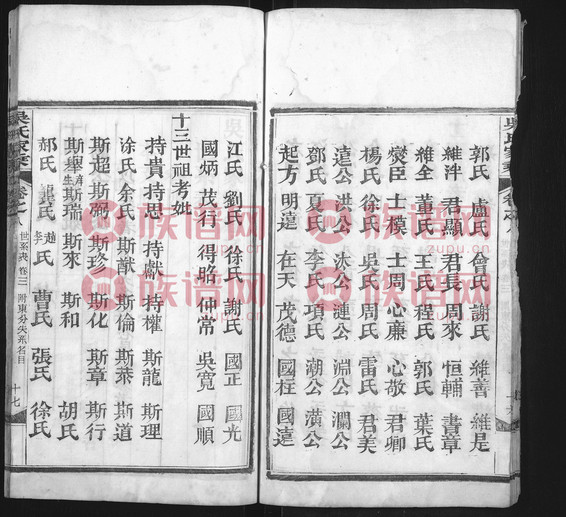 吳氏家
郭氏 盧氏 曾氏 謝氏 維善 維是
維泮 君顯 君長 周來 恒輔 書章
維全 董氏 王氏 程氏 郭氏 葉氏
燮臣 士模 士周 心廉 心敬 君卿
楊氏 徐氏 吳氏 周氏 雷氏 君美
遠公 洪公 漣公 淵公 瀾公
鄧氏 夏氏 李氏 項氏 潮公 潢公
起方 明遠 在天 茂德 國柱 國遠
江氏 劉氏 徐氏 謝氏 國正 國光
國炳 茂行 得昭 仲常 吳寬 國順
十三世祖考妣
持貴 持思 持獻 持權 斯龍 斯理
涂氏 余氏 斯猷 斯倫 斯葉 斯道
斯超 斯弼 斯珍 斯化 斯章 斯行
斯舉 斯瑞 斯來 斯和 胡氏
郝氏 龔氏 趙 李氏 曹氏 張氏 徐氏
吳氏家 卷之八 世系表 卷三 附東分失系名目 十七
族谱网
zupu.cn